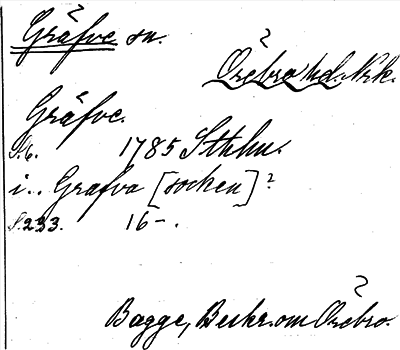 Gräfve sn.
Örebro hd. Nrk.
Gräfve.
S. 6. 1785 Sthlm.
i.. Grafva [socken]?
S. 233. 16-.
Bagge, Beskr. om Örebro.